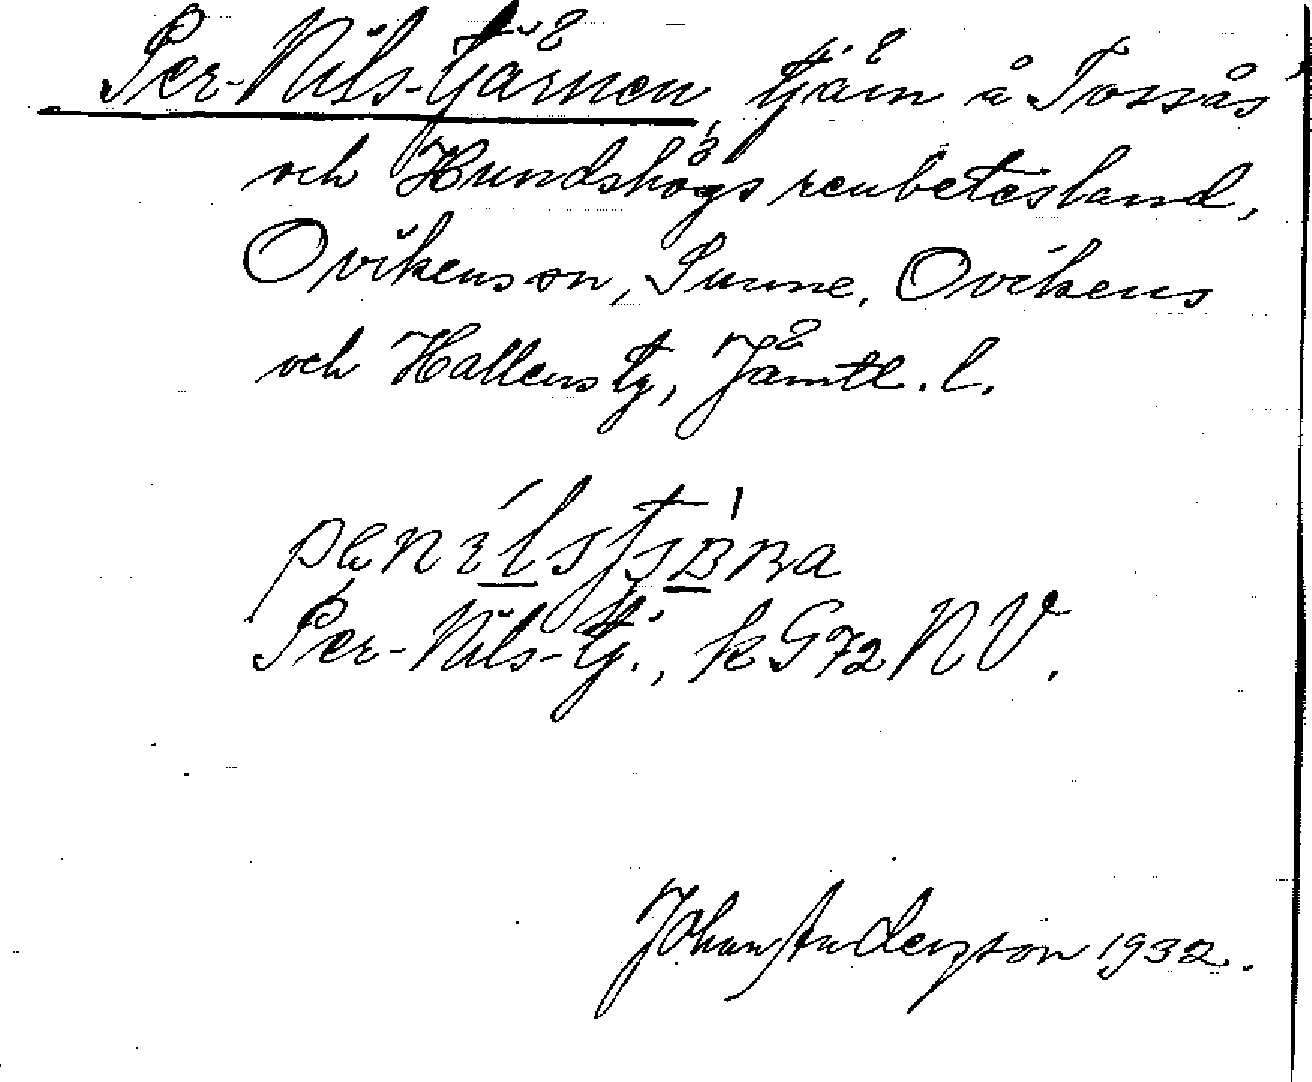 Per-Nils-tjärnen, tjärn å Tossås
och Hundshögs renbetesland,
Ovikens sn, Sunne, Ovikens
och Hallens tg, Jämtl. l.
Per-Nils-tj., k G 72 NV.
Johan Anderzson 1932.